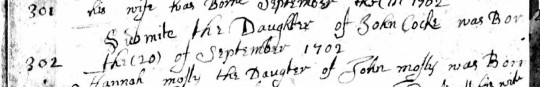 301 his wife was Borne September the 1702
Submite the Daughter of John Cocke was Bor
302 the (20) of September 1702
Hannah mosly the Daugter of John mosly was Bon
his wife